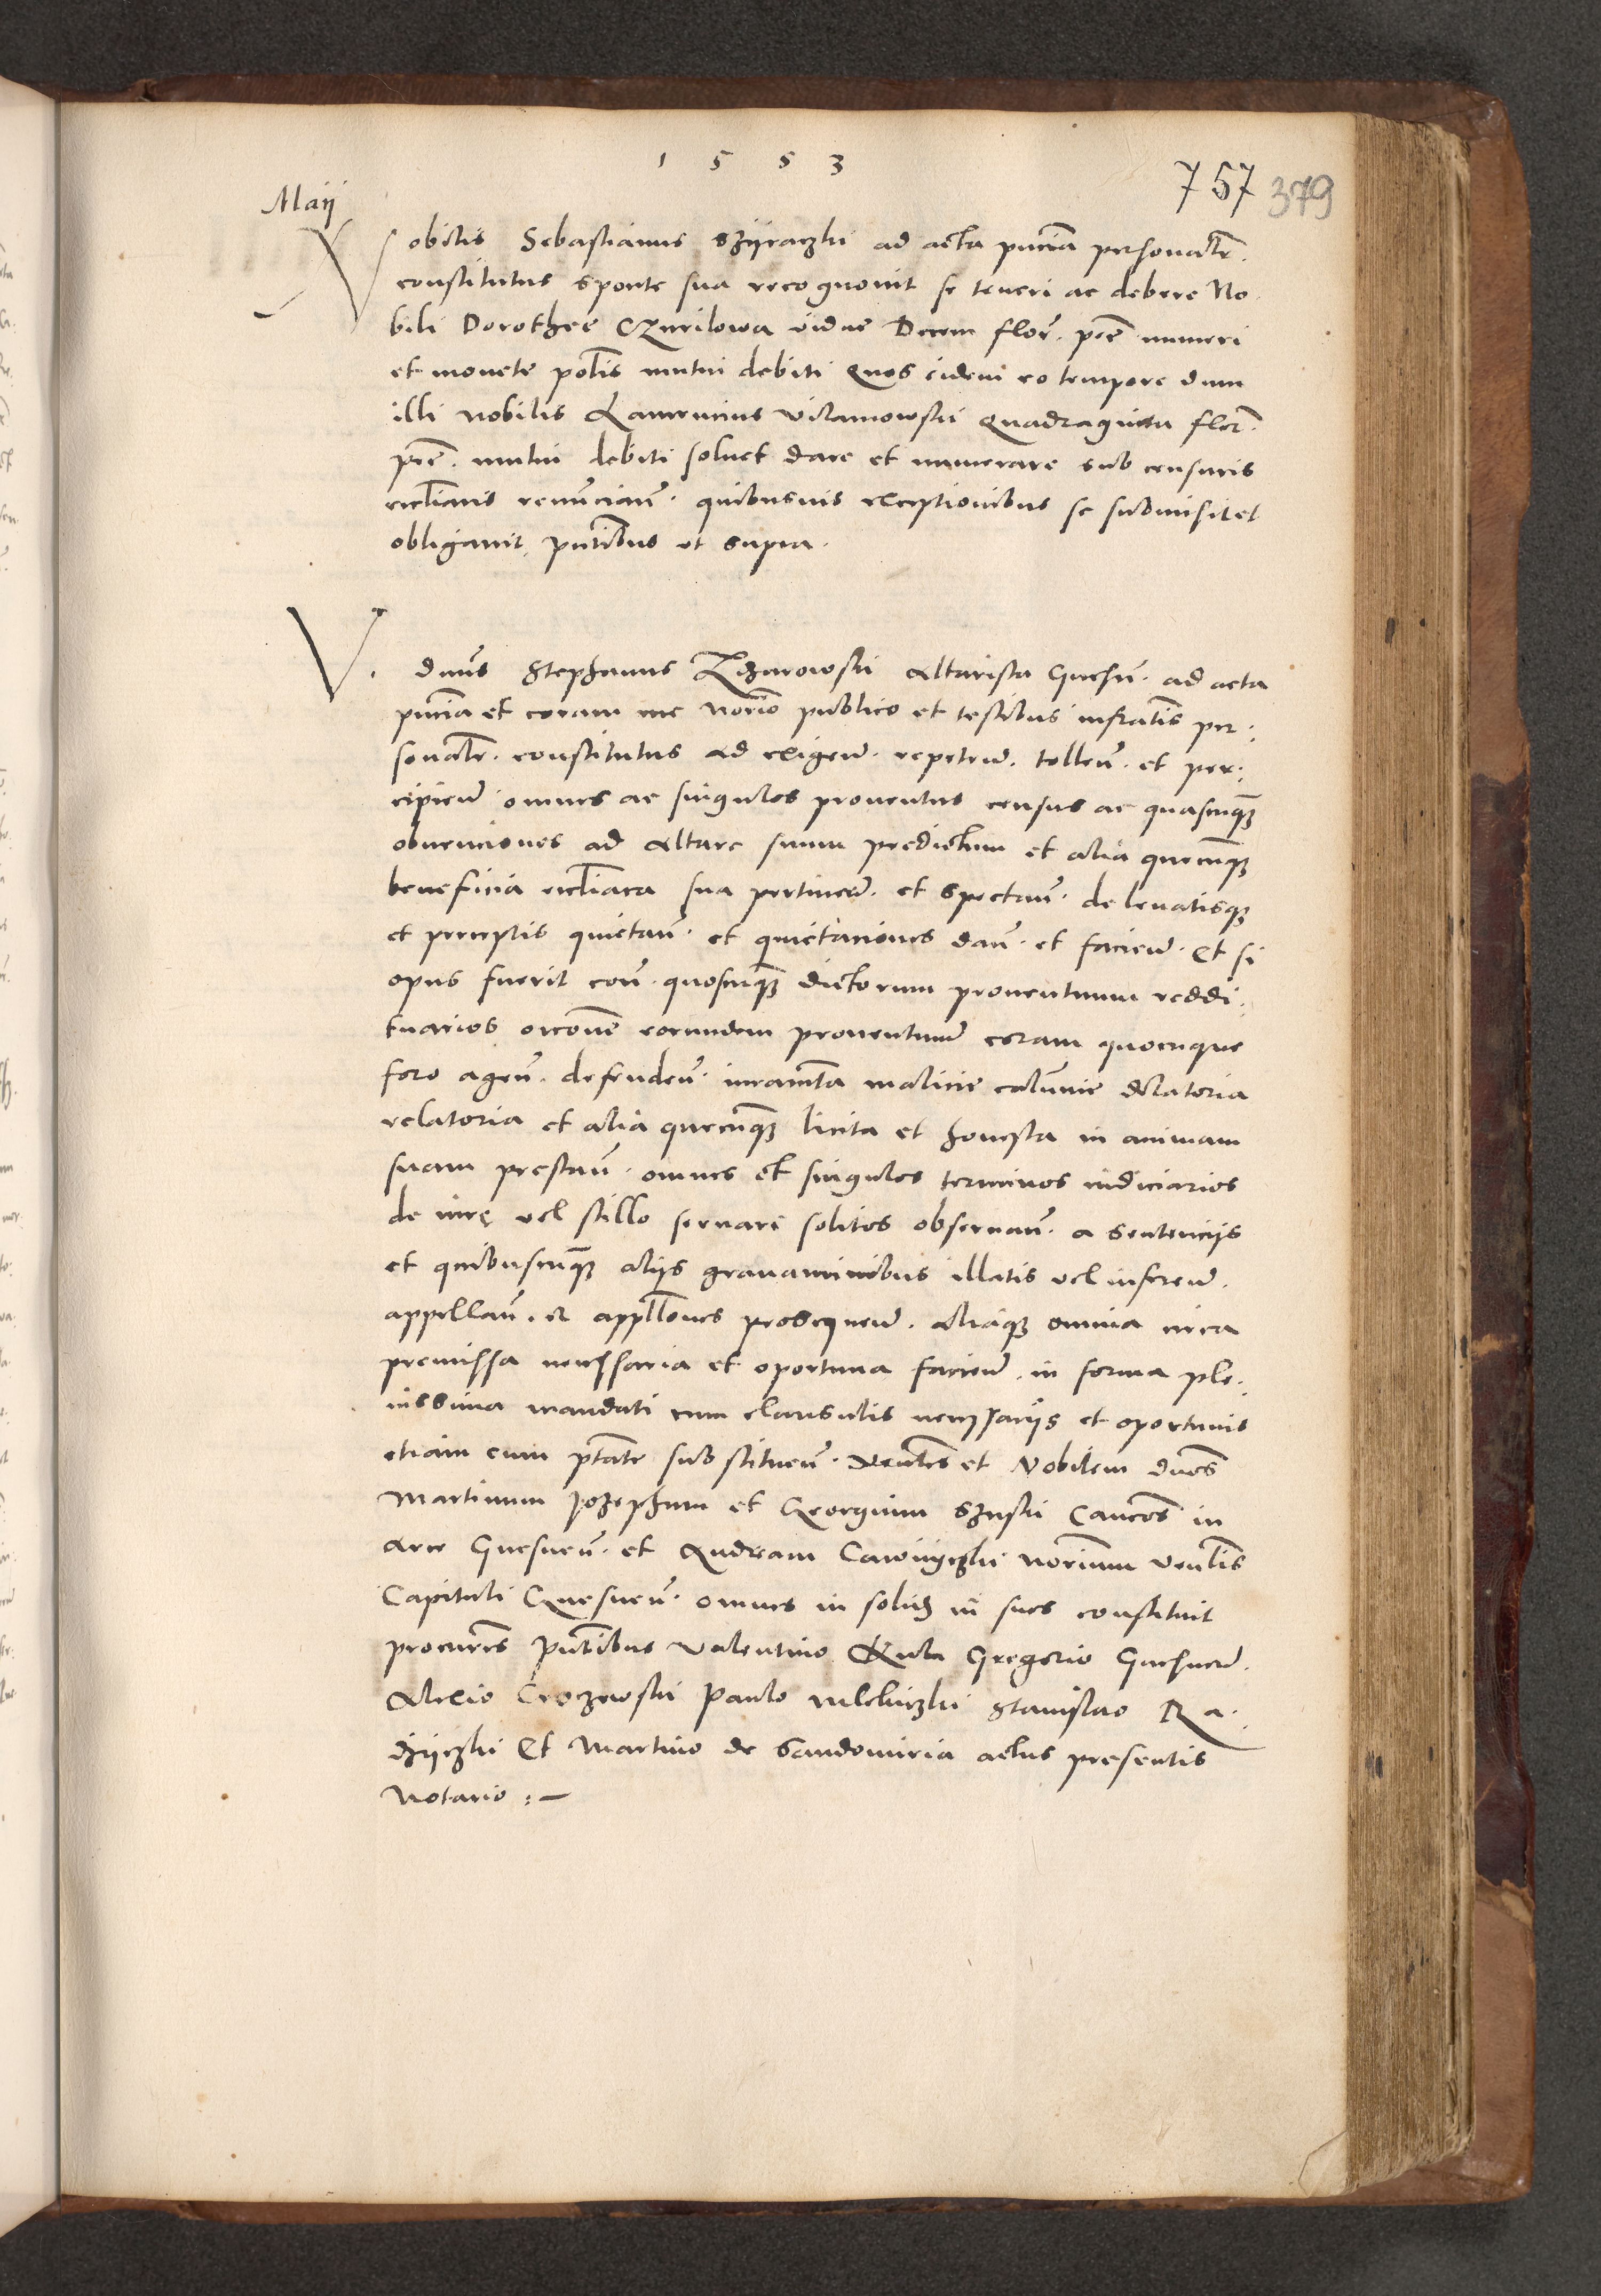 1553
757 379
Maij
Nobilis Sebastianus ad acta pñcia personałr.
constitutus sponte sua recognovit se teneri ac debere No
bili Dorothee Czurilowa vidue Decem flor. pec̃ numeri
et monete polis mutui debiti Quos eidem eo tempore dum
illi nobilis Laurencius Vilamowski Quadraginta flor.
pec̃. mutui debiti solvet dare et numerare sub censuris
eccliaticis renũciañ. quibusvis exceptionibus se submisit et
obligavit pñtibus ut supra.
V. dnus Stephanus Zdzarowski Altarista Gnesñ. ad acta
pñcia et coram me norio publico et testibus infratis per-
sonałr. constitutus ad exigeñ. repeteñ. tolleñ. et per-
cipieñ omnes ac singulos proventus census ac quascunq̃
obvenciones ad Altare suum predictum et alia quecunq̃
beneficia ecclīatca sua pertineñ. et spectañ. de levatisq̃
et perceptis quietañ. et quietaciones dañ. et facieñ. Et si
opus fuerit coñ. quoscunq̃ dictorum proventuum reddi-
tuarios occone eorundem proventuum coram quocunque
foro ageñ. defendeñ. iuramta malicie calũnie delatoria
relatoria et alia quecunq̃ licita et honesta in animam
suam prestañ. omnes et singulos terminos iudiciarios
de iure vel stillo servare solitos observañ. a sentenciis
et quibuscunq̃ aliis gravaminibus illatis vel infereñ.
appellañ. et appellones prosequeñ. aliaq̃ omnia circa
premissa necessaria et oportuna facieñ. in forma ple-
nissima mandati cum clausulis necessariis et oportunis
etiam cum ptate substitueñ. Veñles et Nobilem dnos
Martinum Jozephum et Georgium Szuski Cancros in
Arce Gnesneñ. et Andream norium veñlis
Capituli Gnesneñ. omnes in solidũ in suos constituit
procures pñtibus Valentino Kula Gregorio Gnesneñ.
Alexio Croczewski Paulo Stanislao Ra-
dziiczki Et Martino de Sandomiria actus presentis
Notario :-